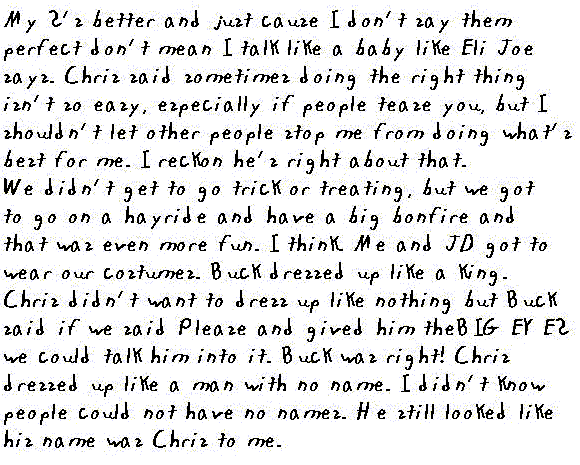 My S's better and just cause I don't say them
perfect don't mean I talk like a baby like Eli Joe
says. Chris said sometimes doing the right thing
isn't so easy, especially if people tease you, but I
shouldn't let other people stop me from doing what's
best for me. I reckon he's right about that.
We didn't get to go trick or treating, but we got
to go on a hayride and have a big bonfire and
that was even more fun. I think. Me and JD got to
wear our costumes. Buck dressed up like a King.
Chris didn't want to dress up like nothing but Buck
said if we said Please and gived him theBIG EYES
we could talk him into it. Buck was right! Chris
dressed up like a man with no name. I didn't know
people could not have no names. He still looked like
his name was Chris to me.